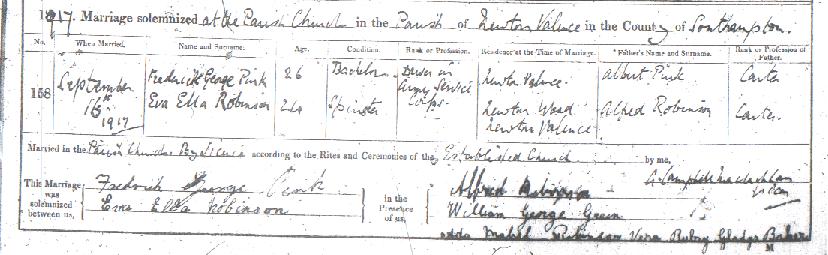 1917. Marriage solemnized at the Parish Church in the Parish of Newton Valence in the County of Southampton.
No. When Married. Name and Surname. Age. Condition. Rank or Profession. Residence at the Time of Marriage. Father's Name and Surname. Rank or Profession of Father.
158 September 16th 1917 Frederick George Pink 26 Bachelor Driver in Army Service Corps Newton Valence Albert Pink Carter
Eva Ella Robinson 24 Spinster Newton Wood Newton Valence Alfred Robinson Carter
Married in the Parish Church according to the Rites and Ceremonies of the Established Church by me,
This Marriage was solemnized between us, Frederick George Pink
Eva Ella Robinson
in the Presence of us, Alfred Robinson
William George Green
Mabel Robinson Vera Ruby Gladys Baker